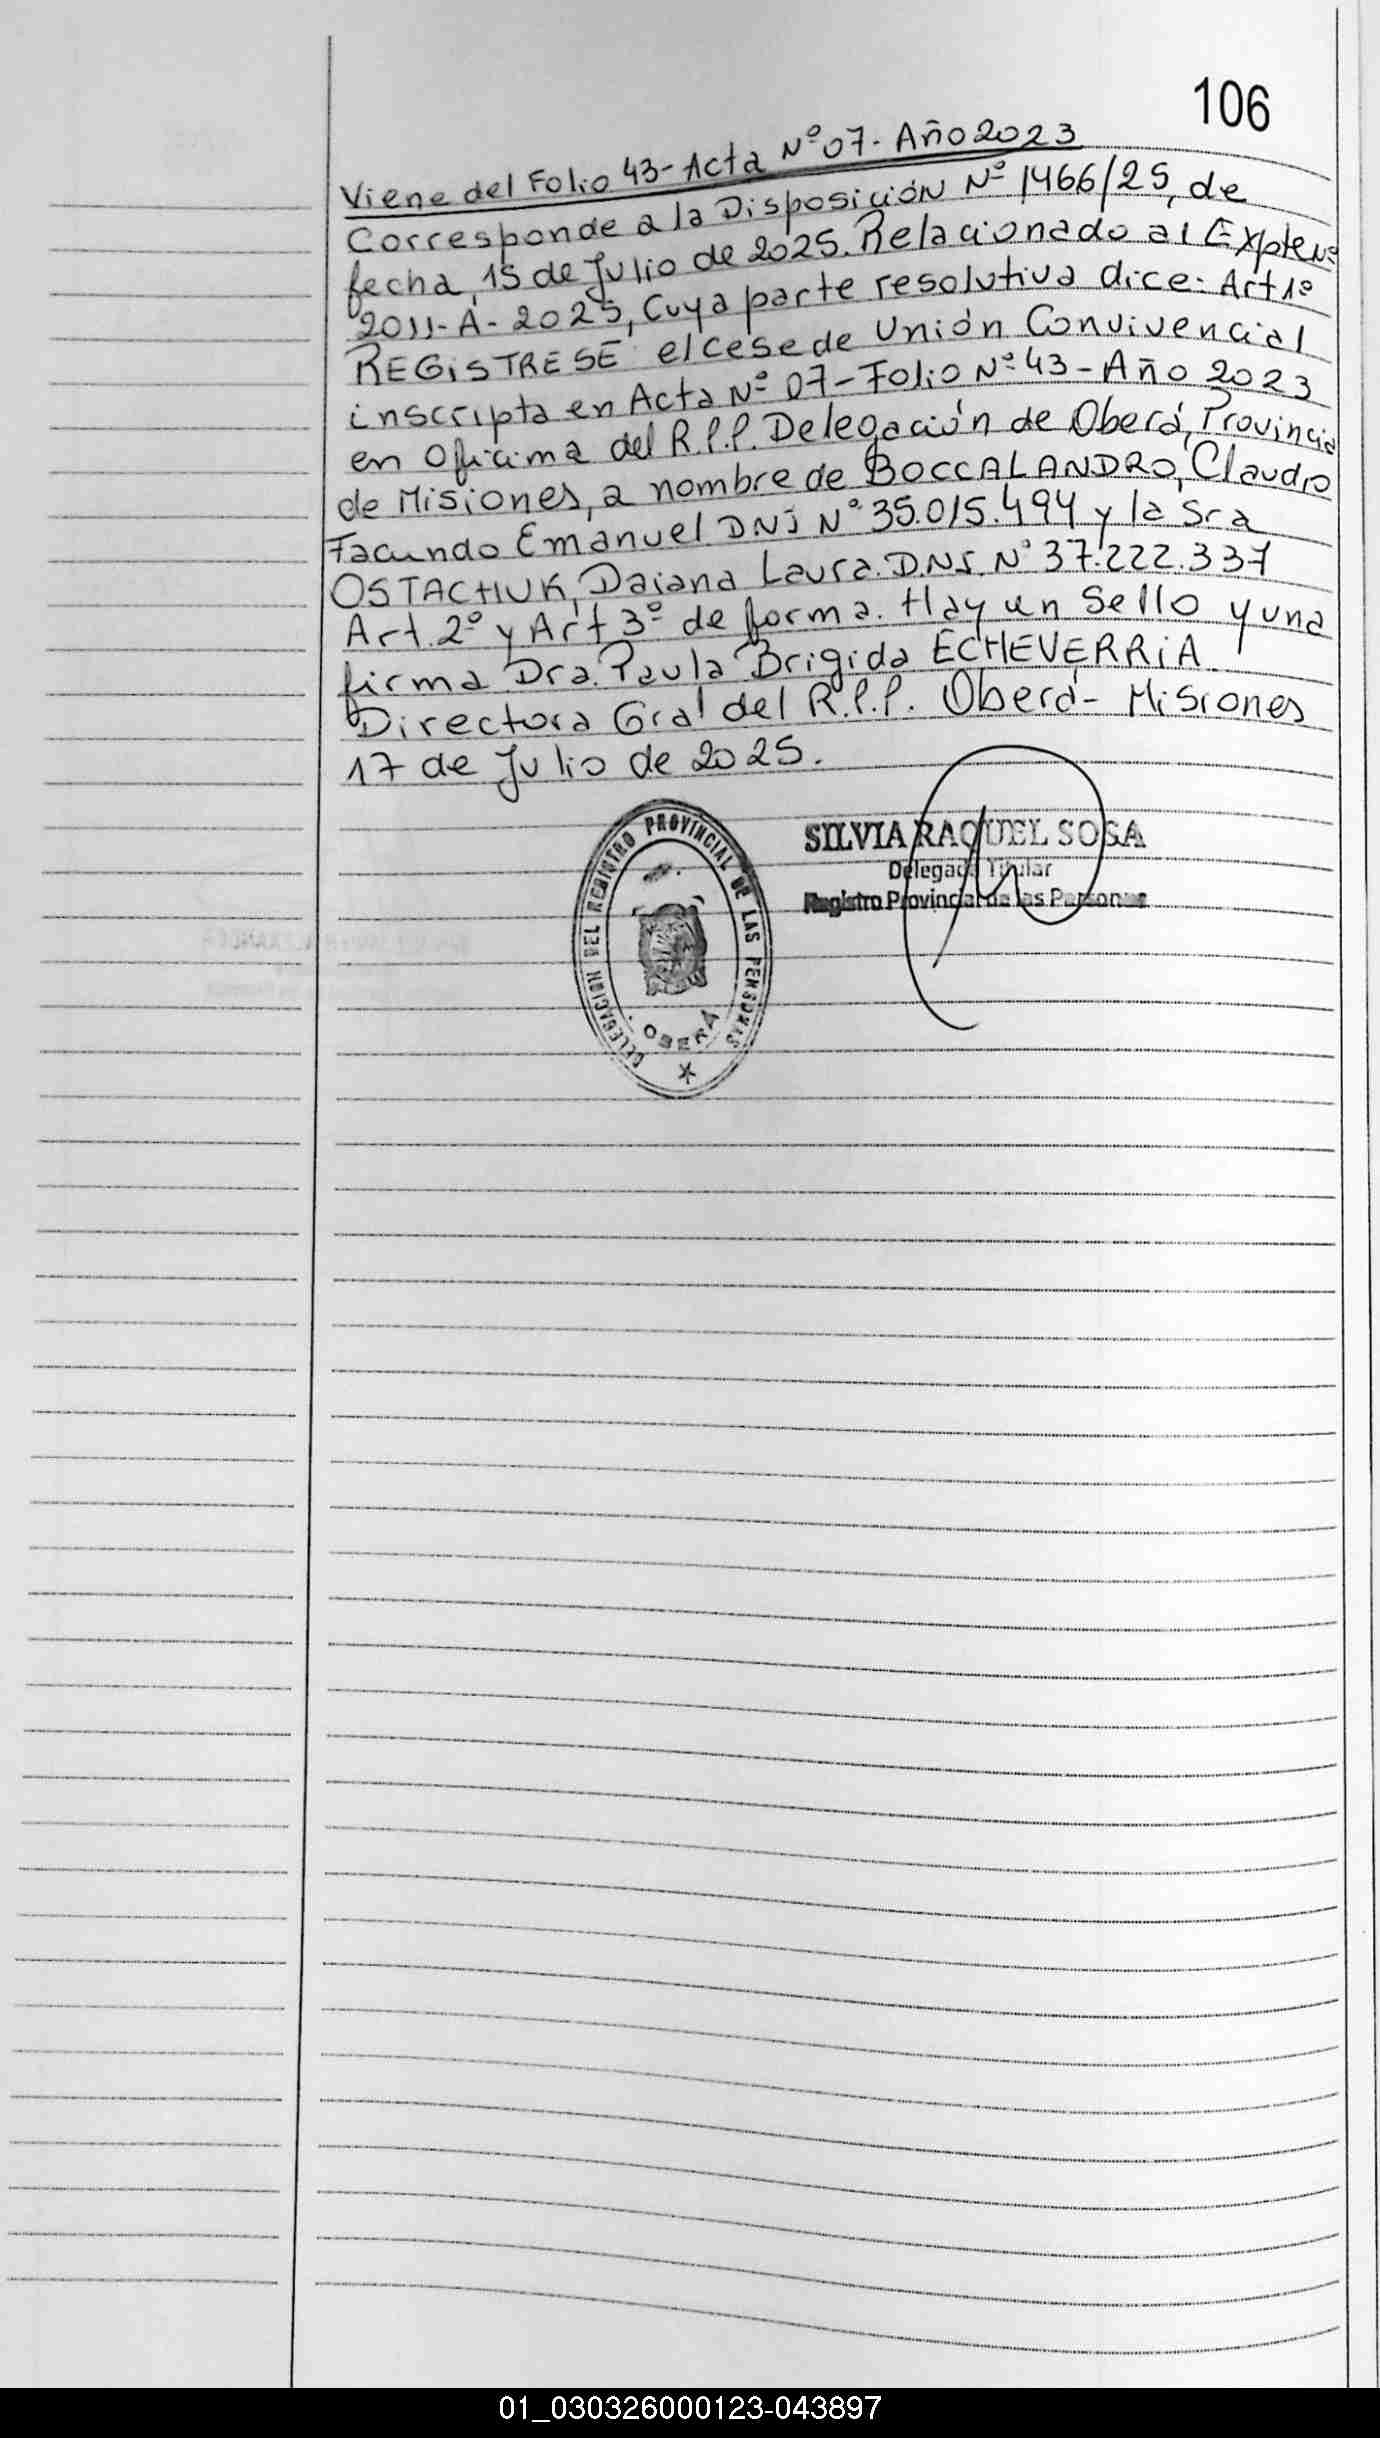 106
Viene del Folio 43-Acta Nº07-Año 2023
Corresponde a la Disposición Nº 1466/25, de
fecha, 15 de Julio de 2025. Relacionado al Expte Nº
2011-A-2025, Cuya parte resolutiva dice: Art 1º
REGISTRESE el cese de Unión Convivencial
inscripta en Acta Nº 07-Folio Nº 43-Año 2023
en Oficima del R.P.P. Delegación de Oberá, Provincia
de Misiones, a nombre de BOCCALANDRO, Claudio
Facundo Emanuel DNI Nº 35.015.494 y la Sra
OSTACHUK, Daiana Laura. D.N.I. Nº 37.222.337
Art. 2º y Art 3º de forma. Hay un Sello y una
firma Dra. Paula Brigida ECHEVERRIA
Directora Gral del R.P.P. Oberá- Misiones
17 de Julio de 2025.
SILVIA RAQUEL SOSA
Delegada Titular
Registro Provincial de las Personas
DELEGACION DEL REGISTRO PROVINCIAL DE LAS PERSONAS
OBERA
01_030326000123-043897